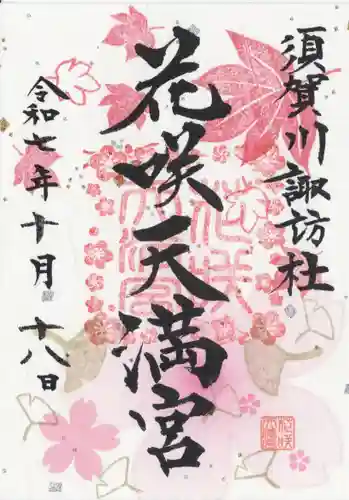 須賀川諏訪社
花咲天満宮
令和七年十月十八日